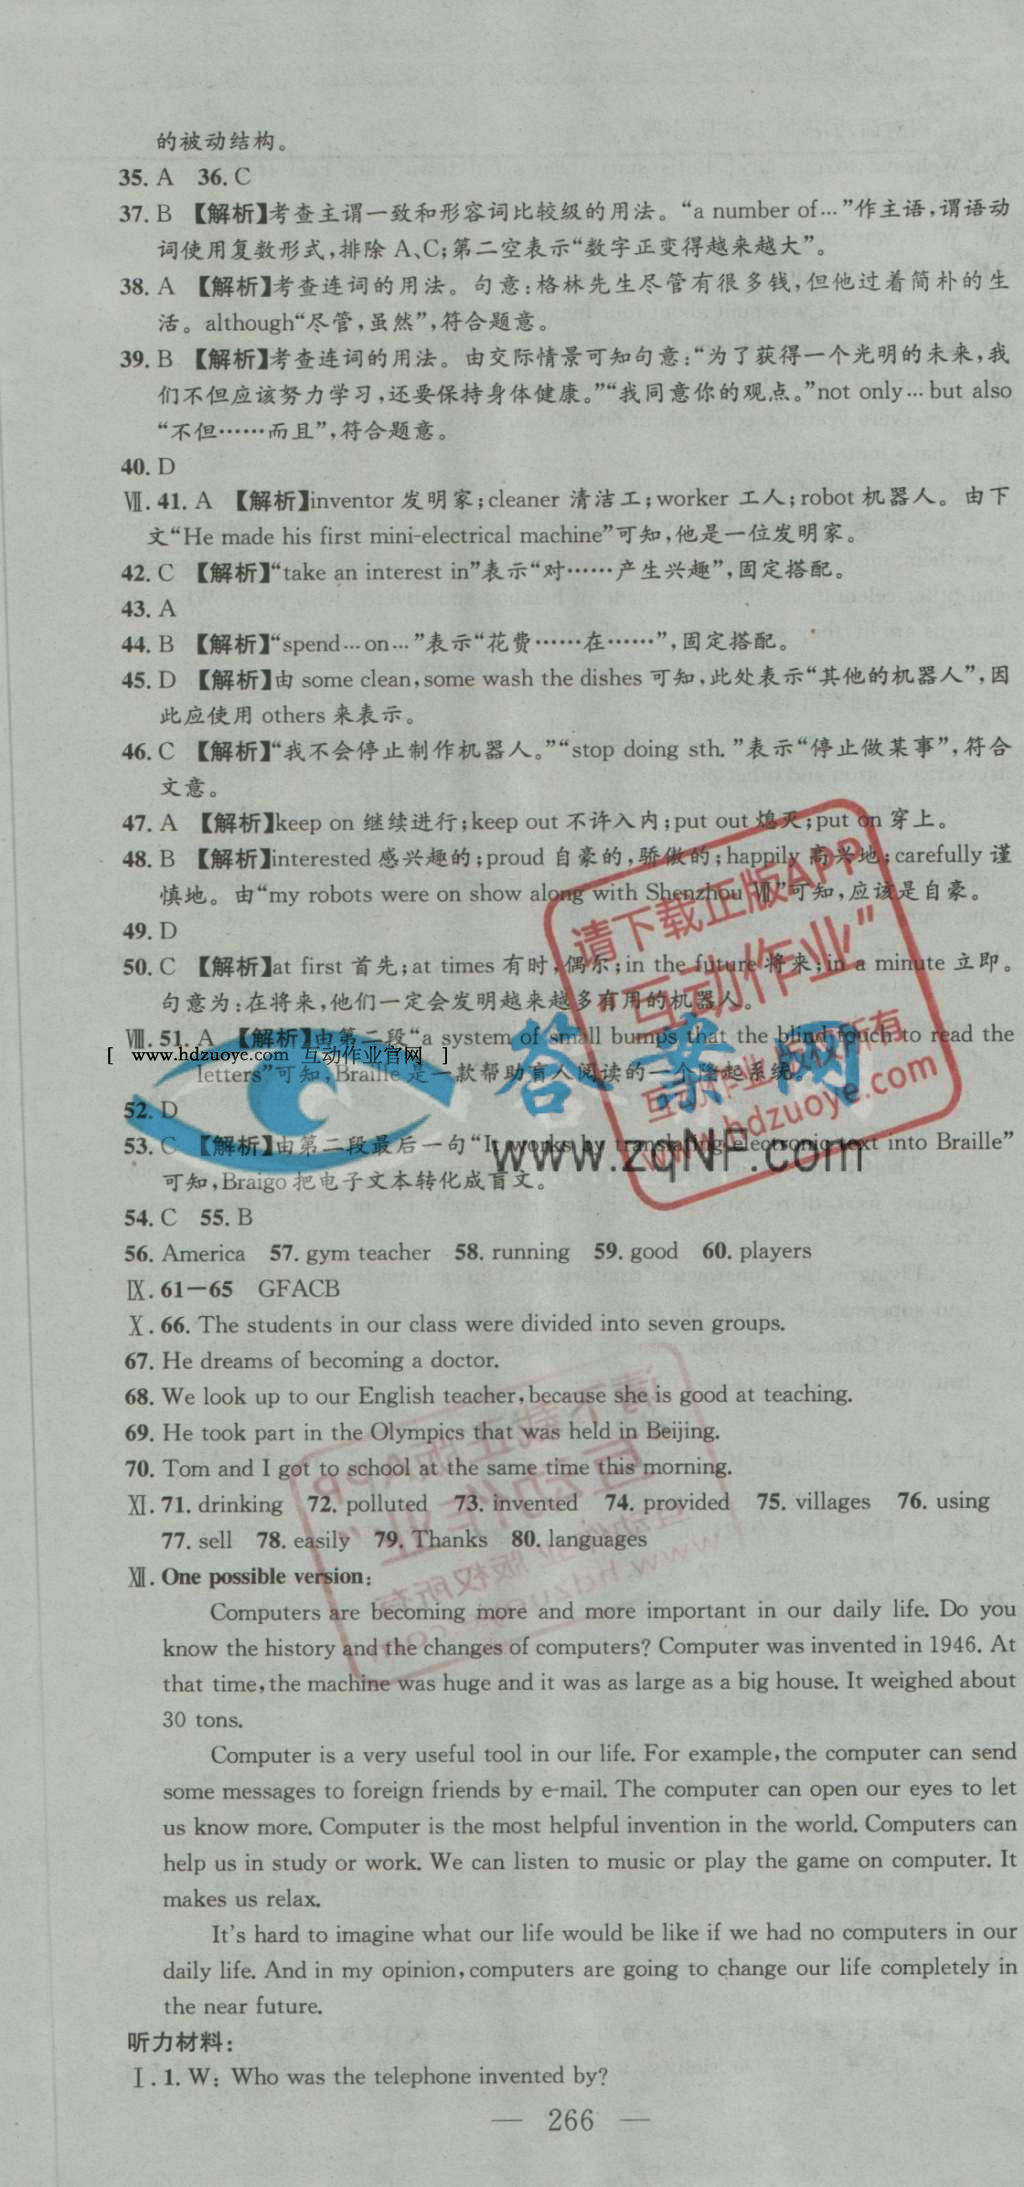 的被动结构。
35. A 36. C
37. B 【解析】考查主谓一致和形容词比较级的用法。“a number of…”作主语,谓语动
词使用复数形式,排除A、C;第二空表示“数字正变得越来越大”。
38. A 【解析】考查连词的用法。句意:格林先生尽管有很多钱,但他过着简朴的生
活。although“尽管,虽然”,符合题意。
39. B 【解析】考查连词的用法。由交际情景可知句意:“为了获得一个光明的未来,我
们不但应该努力学习,还要保持身体健康。”“我同意你的观点。”not only…but also
“不但……而且”,符合题意。
40. D
Ⅶ. 41. A 【解析】inventor 发明家;cleaner 清洁工;worker 工人;robot 机器人。由下
文“He made his first mini-electrical machine”可知,他是一位发明家。
42. C 【解析】“take an interest in”表示“对……产生兴趣”,固定搭配。
43. A
44. B 【解析】“spend…on…”表示“花费……在……”,固定搭配。
45. D 【解析】由 some clean, some wash the dishes 可知,此处表示“其他的机器人”,因
此应使用 others 来表示。
46. C 【解析】“我不会停止制作机器人。”“stop doing sth. ”表示“停止做某事”,符合
文意。
47. A 【解析】keep on 继续进行;keep out 不许入内;put out 熄灭;put on 穿上。
48. B 【解析】interested 感兴趣的;proud 自豪的,骄傲的;happily 高兴地;carefully 谨
慎地。由“my robots were on show along with Shenzhou Ⅶ”可知,应该是自豪。
49. D
50. C 【解析】at first 首先;at times 有时,偶尔;in the future 将来;in a minute 立即。
句意为:在将来,他们一定会发明越来越多有用的机器人。
Ⅷ. 51. A 【解析】由第二段“a system of small bumps that the blind touch to read the
letters”可知,Braille 是一款帮助盲人阅读的一个隆起系统。
52. D
53. C 【解析】由第二段最后一句“It works by translating electronic text into Braille”
可知,Braigo 把电子文本转化成盲文。
54. C 55. B
56. America 57. gym teacher 58. running 59. good 60. players
Ⅸ. 61—65 GFACB
Ⅹ. 66. The students in our class were divided into seven groups.
67. He dreams of becoming a doctor.
68. We look up to our English teacher, because she is good at teaching.
69. He took part in the Olympics that was held in Beijing.
70. Tom and I got to school at the same time this morning.
Ⅺ. 71. drinking 72. polluted 73. invented 74. provided 75. villages 76. using
77. sell 78. easily 79. Thanks 80. languages
Ⅻ. One possible version:
Computers are becoming more and more important in our daily life. Do you
know the history and the changes of computers? Computer was invented in 1946. At
that time, the machine was huge and it was as large as a big house. It weighed about
30 tons.
Computer is a very useful tool in our life. For example, the computer can send
some messages to foreign friends by e-mail. The computer can open our eyes to let
us know more. Computer is the most helpful invention in the world. Computers can
help us in study or work. We can listen to music or play the game on computer. It
makes us relax.
It's hard to imagine what our life would be like if we had no computers in our
daily life. And in my opinion, computers are going to change our life completely in
the near future.
听力材料:
Ⅰ. 1. W: Who was the telephone invented by?
— 266 —
[ www.hdzuoye.com 互动作业官网 ]
答案网
www.zqNF.com
请下载正版APP
“互动作业”
互动作业版权所有
www.hdzuoye.com